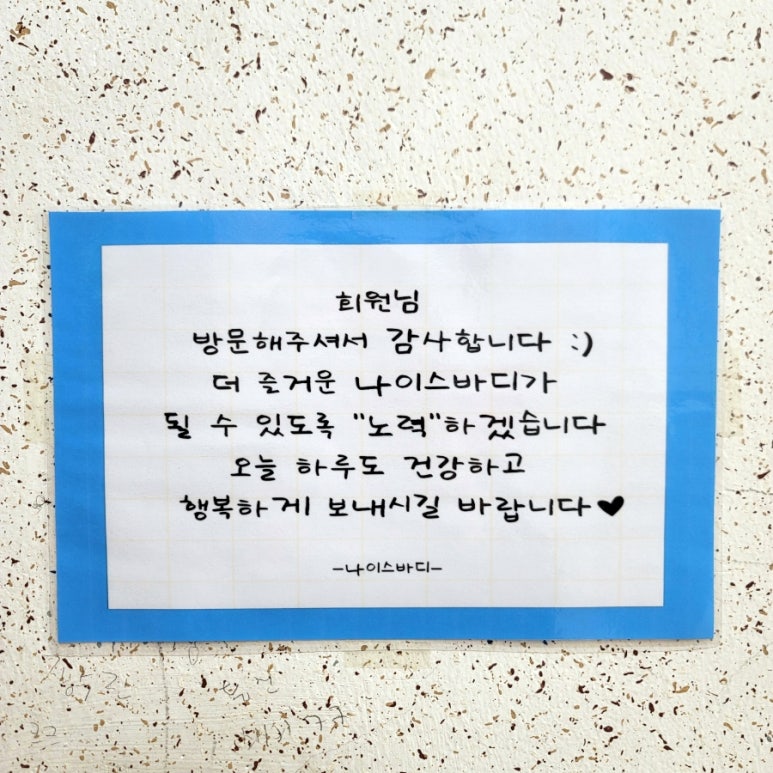 회원님
방문해주셔서 감사합니다 :)
더 즐거운 나이스바디가
될 수 있도록 "노력"하겠습니다
오늘 하루도 건강하고
행복하게 보내시길 바랍니다♥
-나이스바디-